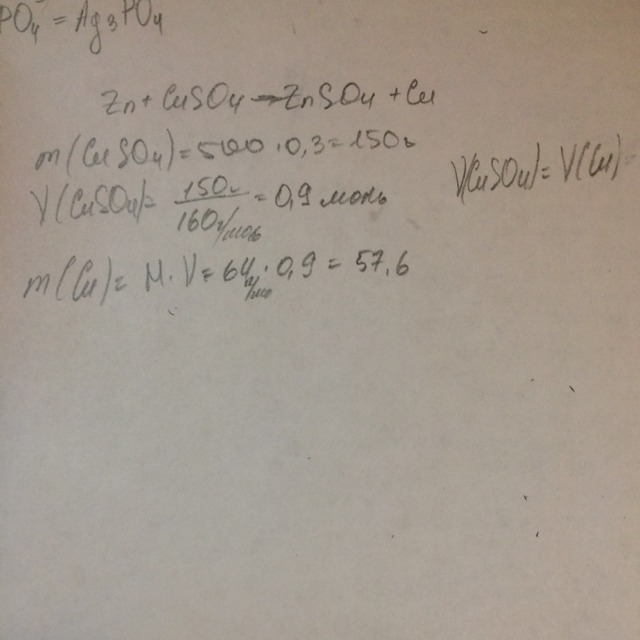 PO₄ = Ag₃PO₄
Zn + CuSO₄ → ZnSO₄ + Cu
m(CuSO₄) = 500 · 0,3 = 150г
V(CuSO₄) = 150г / 160г/моль = 0,9 моль
V(CuSO₄) = V(Cu) =
m(Cu) = M · V = 64 г/мо · 0,9 = 57,6